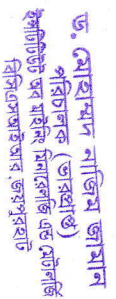 ড. মোহাম্মদ নাজিম জামান
পরিচালক (ভারপ্রাপ্ত)
ইন্সটিটিউট অব মাইনিং, মিনারেলজি এন্ড মেটালার্জি
বিসিএসআইআর, জয়পুরহাট